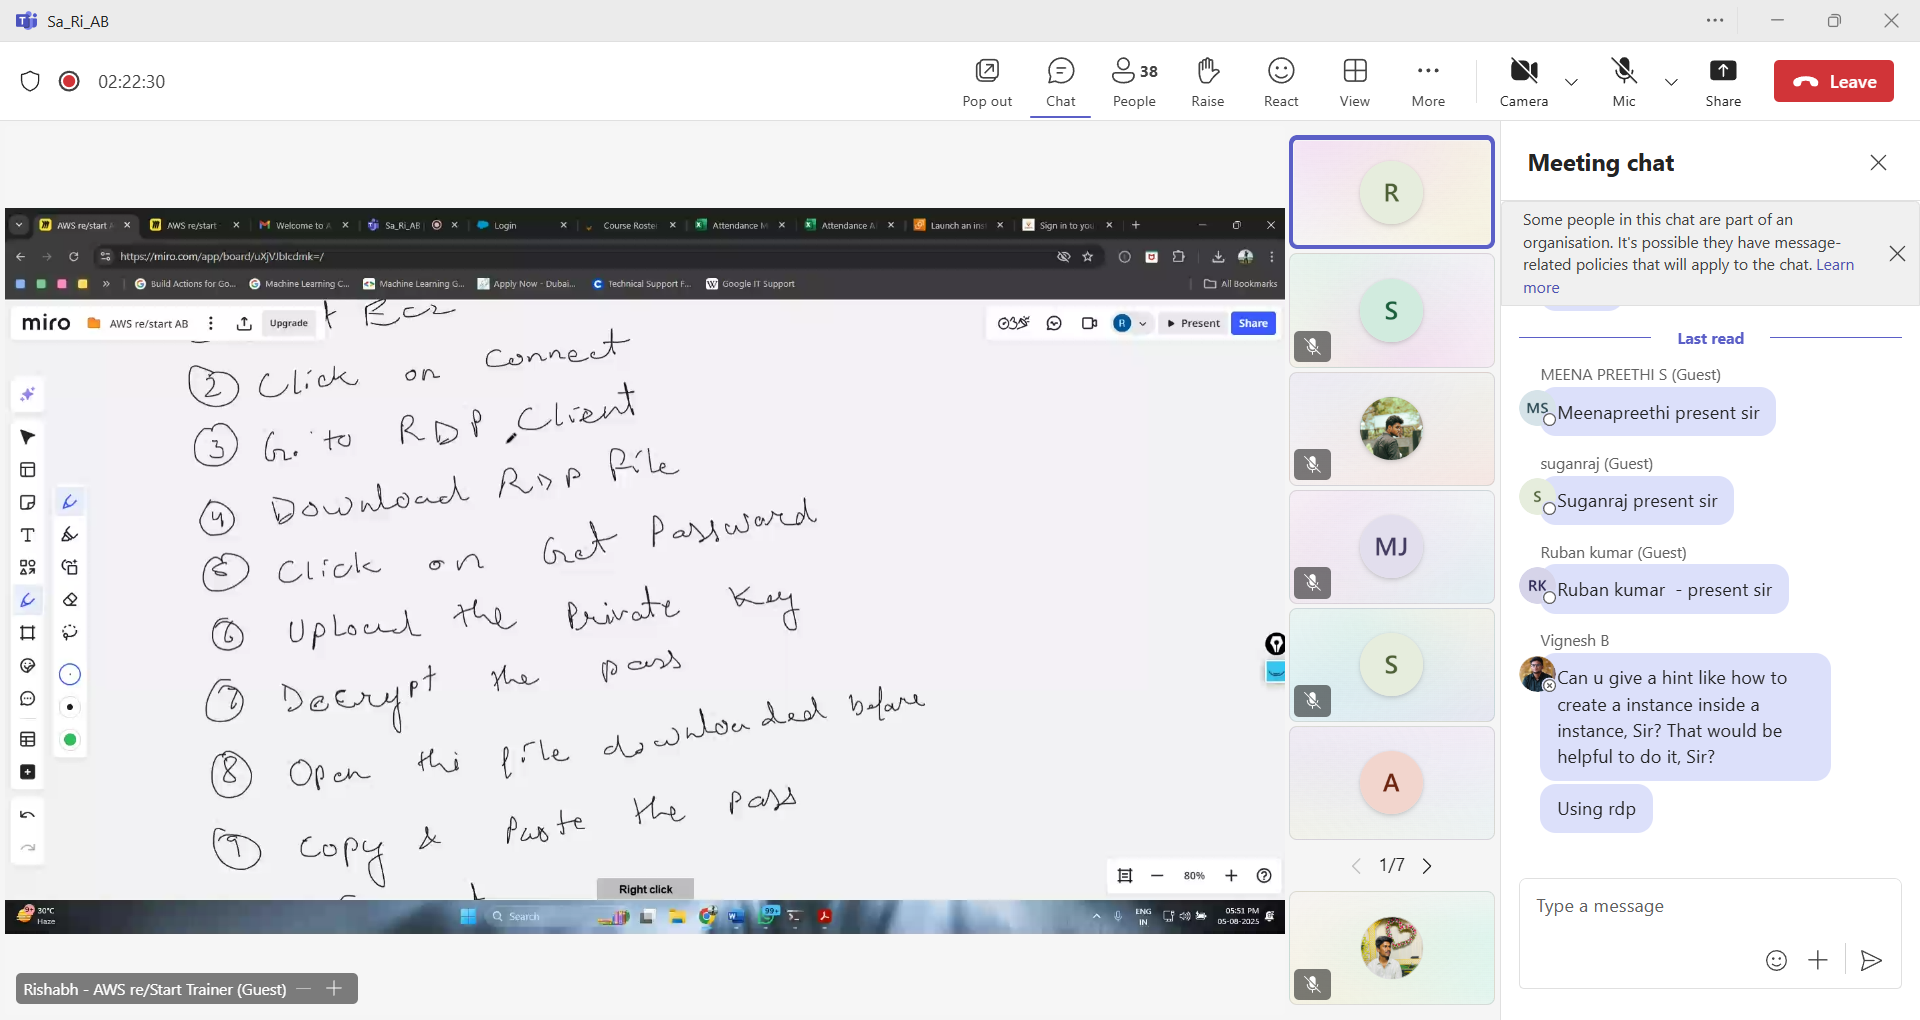 Sa_Ri_AB
02:22:30
Pop out
Chat
People
38
Raise
React
View
More
Camera
Mic
Share
Leave
AWS re/start A
AWS re/start
Welcome to A
Sa_Ri_AB
Login
Course Roster
Attendance M
Attendance A
Launch an ins
Sign in to you
https://miro.com/app/board/uXjVJblcdmk=/
Build Actions for Go...
Machine Learning C...
Machine Learning G...
Apply Now - Dubai...
Technical Support F...
Google IT Support
All Bookmarks
miro
AWS re/start AB
Upgrade
R
Present
Share
t Ec2
2 Click on Connect
3 Go to RDP Client
4 Download RDP file
5 Click on Get Password
6 Upload the Private Key
7 Decrypt the pass
8 Open the file downloaded before
9 Copy & Paste the pass
Right click
80%
30°C
Haze
Search
99+
ENG
IN
05:51 PM
05-08-2025
Rishabh - AWS re/Start Trainer (Guest)
R
S
MJ
S
A
1/7
Meeting chat
Some people in this chat are part of an
organisation. It's possible they have message-
related policies that will apply to the chat. Learn
more
Last read
MEENA PREETHI S (Guest)
MS
Meenapreethi present sir
suganraj (Guest)
S
Suganraj present sir
Ruban kumar (Guest)
RK
Ruban kumar - present sir
Vignesh B
Can u give a hint like how to
create a instance inside a
instance, Sir? That would be
helpful to do it, Sir?
Using rdp
Type a message